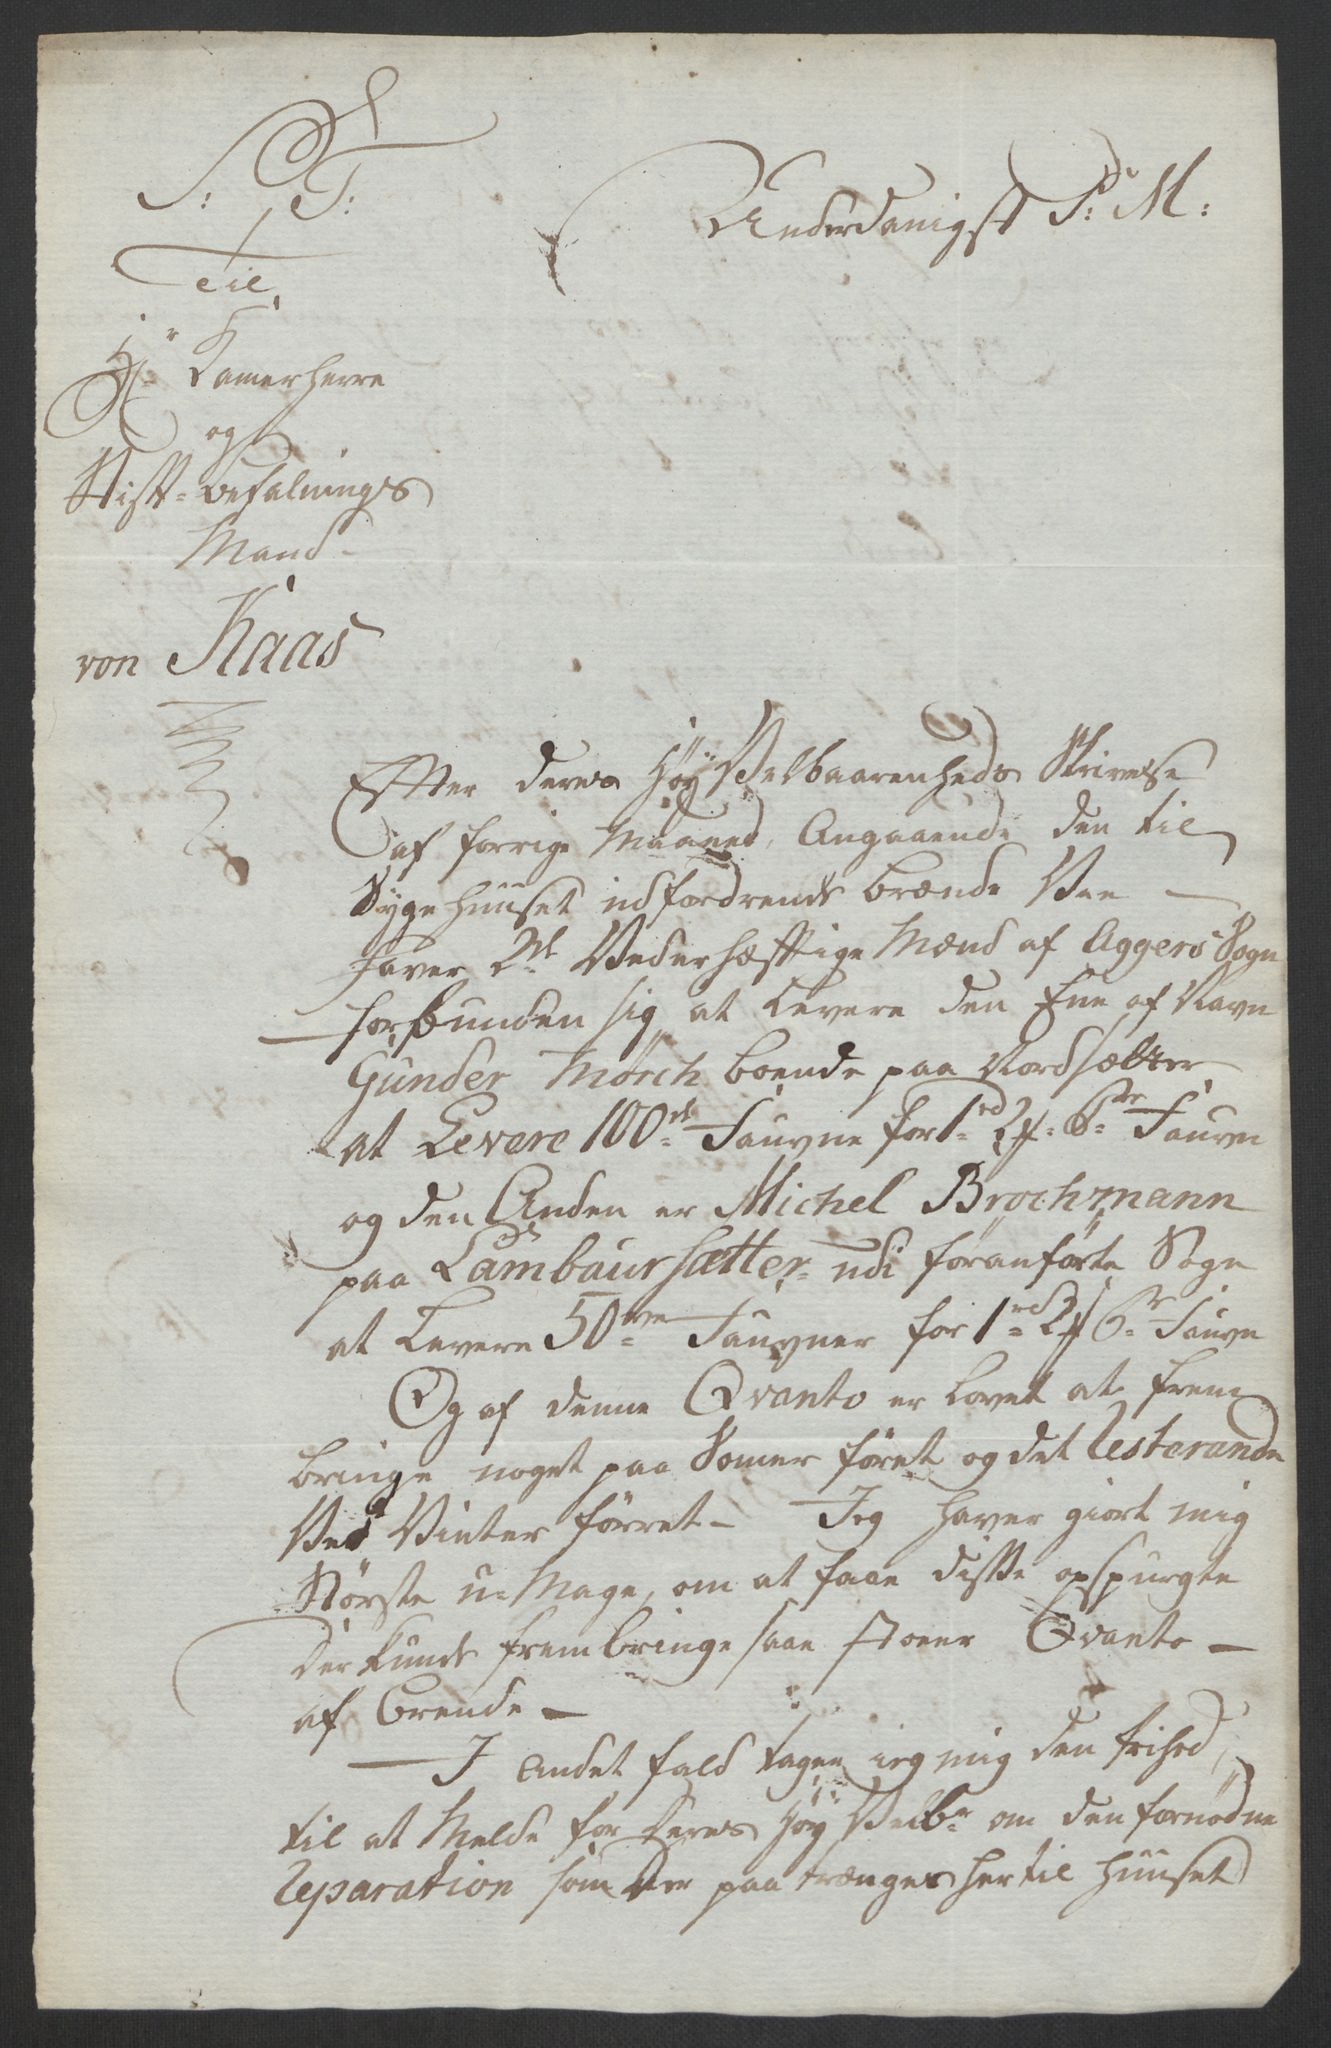 S: T:
Til
Hr Kamerherre
og
Stift-befalnings
Mand
von Kaas
Underdanigst P: M:
Effter deres Höy Velbaarenheds Skrivelse
af forrige Maaned, Angaaende den til
Syge Huuset udfordrende brænde Vee
haver 2de Vederhæfftige Mænd af Aggers Sogn
forbunden sig at Levere den Ene af Navn
Gunder Mörch boende paa Nordsætter
at Levere 100de Fauvne for 1rd Fauvn
og den Anden er Michel Brochmann
paa Lambaursætter udi foranförte Sogn
at Levere 50tve Fauvner for 1rd Fauvn
Og af denne Qvanto er lovet at frem
bringe noget paa Somer föret og det Resterande
Ved Vinter förret - Jeg haver giort mig
Störste u-Mage, om at faae disse opspurgte
der kunde frembringe saae stoer Qvanto
af brende
I Andet fald tager ieg mig den frihed,
til at Melde for Deres Höy Velbr om den fornödne
Reparation som der paa trænges her til Huuset